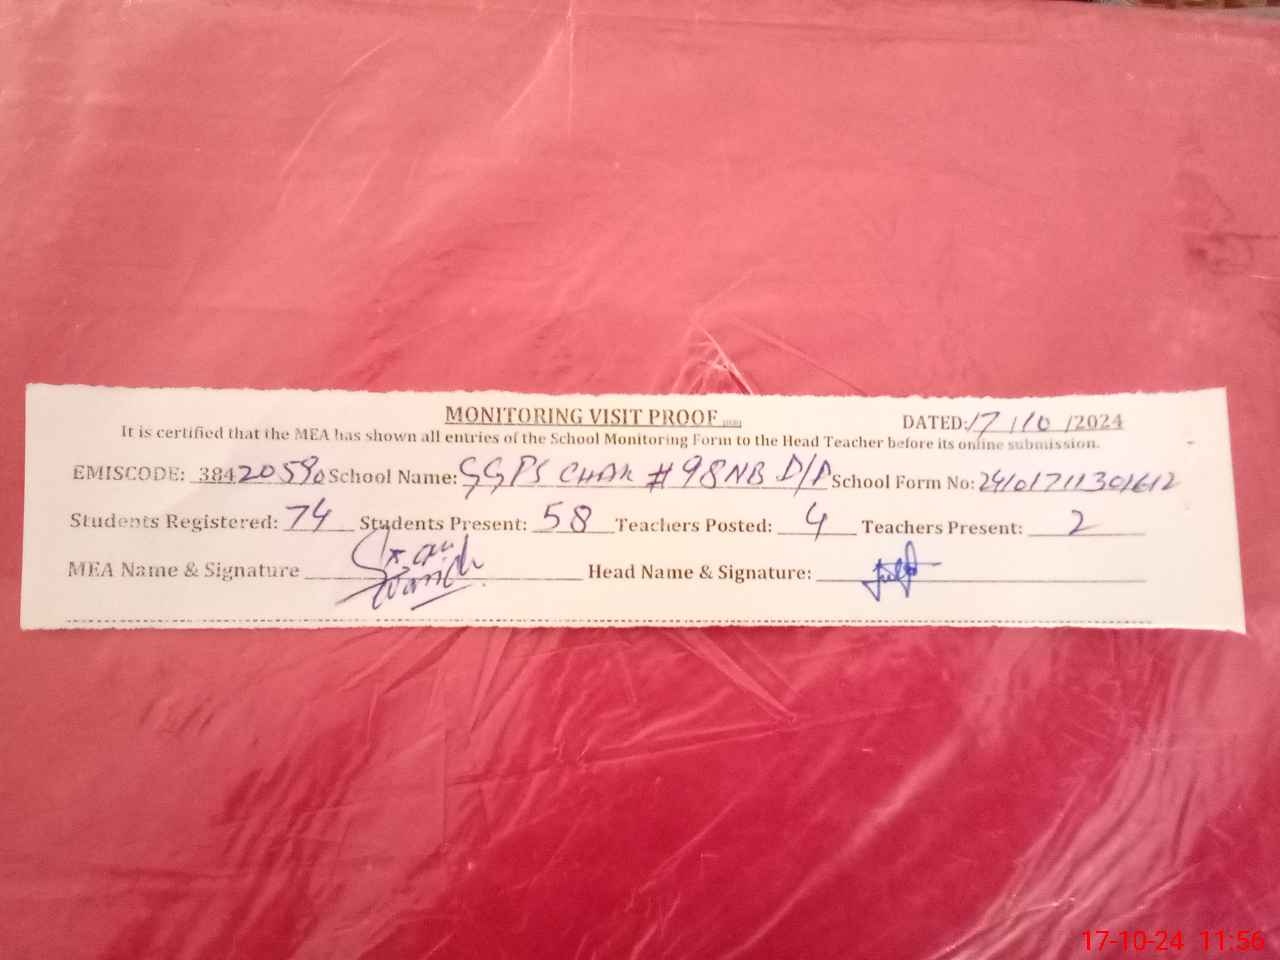 MONITORING VISIT PROOF
DATED: 17/10/2024
It is certified that the MEA has shown all entries of the School Monitoring Form to the Head Teacher before its online submission.
EMISCODE: 38420590 School Name: GGPS CHAK #98NB D/P School Form No: 24101711301612
Students Registered: 74 Students Present: 58 Teachers Posted: 4 Teachers Present: 2
MEA Name & Signature Head Name & Signature:
17-10-24 11:56